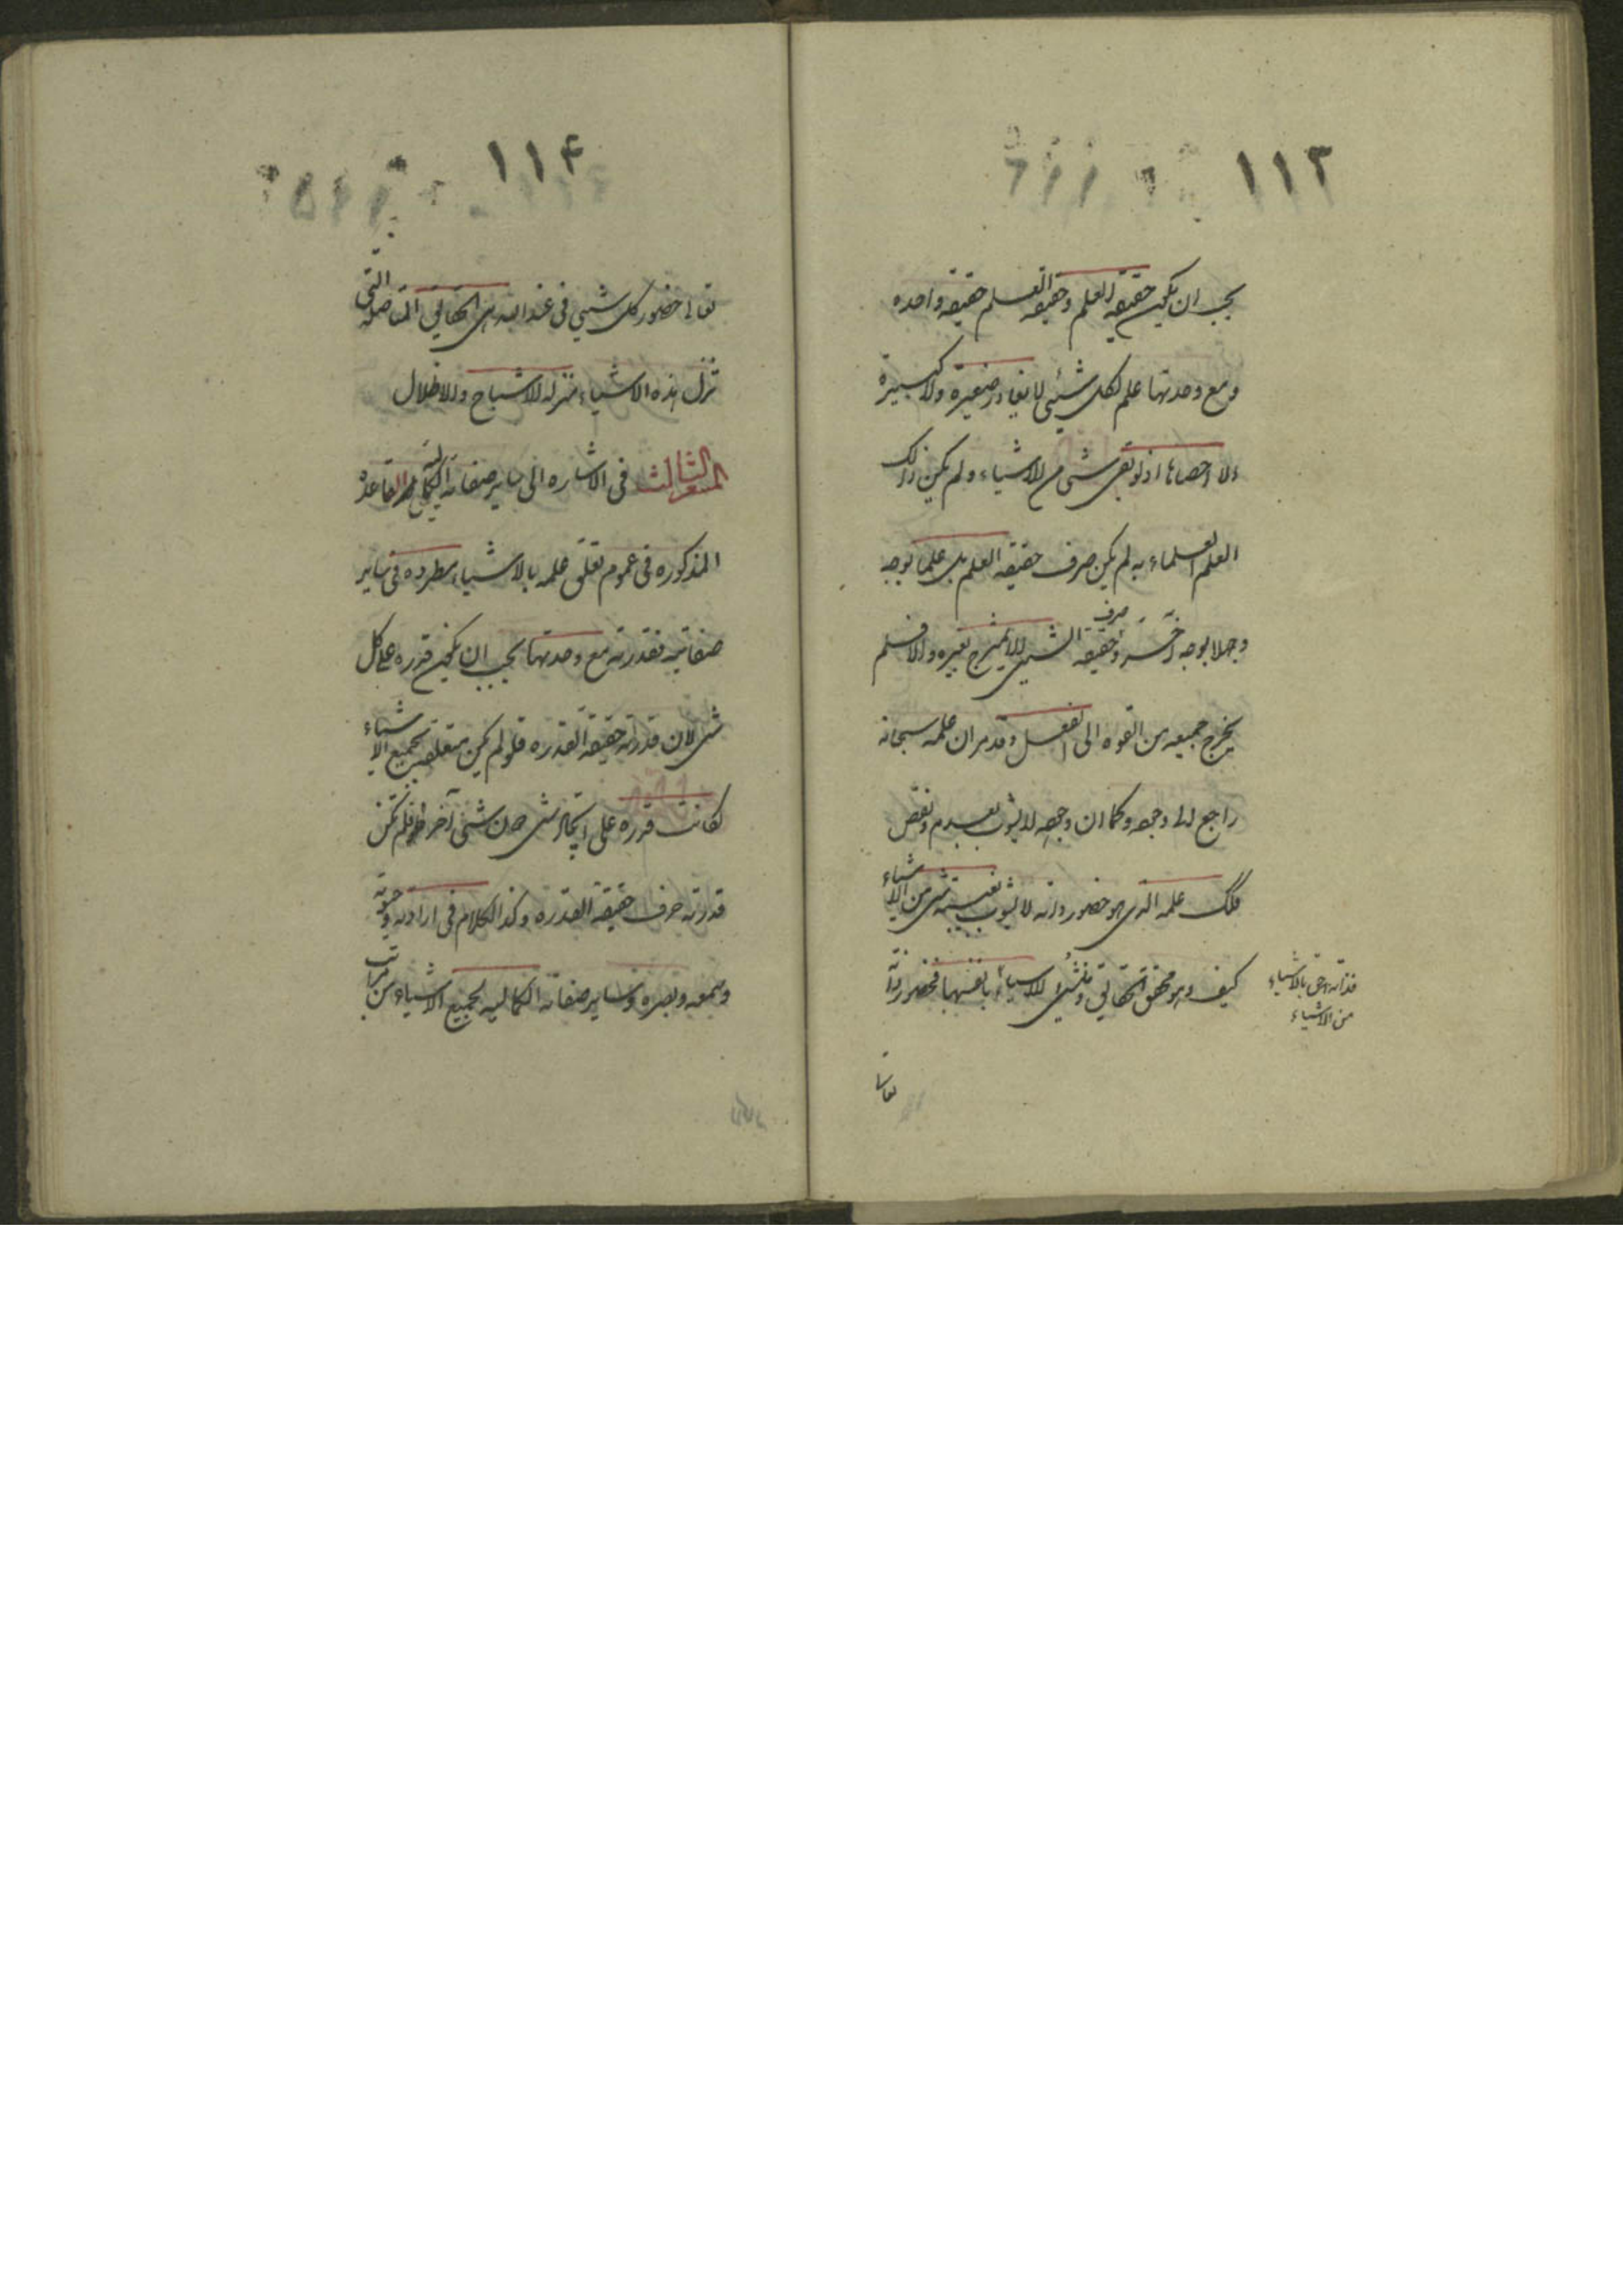 ١١٣
يجب ان يكون حقيقه العلم وحقيقه العلم حقيقه واحده
ومع وحدتها علم بكل شيئى لا يغادر صغيرة ولا كبيرة
الا احصاها اذ لو بقى شى من الاشياء ولم يكن ذلك
العلم علماء به لم يكن صرف حقيقه العلم بل علما بوجه
وجهلا بوجه آخر وصرف حقيقه الشيى لا يمتزج بغيره والا فلم
يخرج جميعه من القوه الى الفعل وقد مر ان علمه سبحانه
راجع الى وجوده وكما ان وجوده لا يشوب بعدم ونقص
فكك علمه الذى هو حضور ذاته لا يشوب بغيبته شى من الاشياء
كيف وهو محقق الحقايق ومشيئ الاشياء بانفسها فحضور ذاته
فذاته احق بالاشياء
من الاشياء
تعالى
١١۴
تعالى حضور كل شيى فى عند الله هى الحقايق المتاصله التى
تنزل هذه الاشياء منزله الاشباح والاظلال
المشعر الثالث فى الاشاره الى ساير صفاته الكماليه القاعده
المذكوره فى عموم تعلق علمه بالاشياء مطرده فى ساير
صفاته فقدرته مع وحدتها يجب ان يكون قدره على كل
شى لان قدرته حقيقه القدره فلو لم يكن متعلقه بجميع الاشياء
لكانت قدره على ايجاد شى دون شى آخر فلم تكن
قدرته صرف حقيقه القدره وكذا الكلام فى ارادته وحيوته
وسمعه وبصره وساير صفاته الكماليه فجميع الاشياء من مراتب